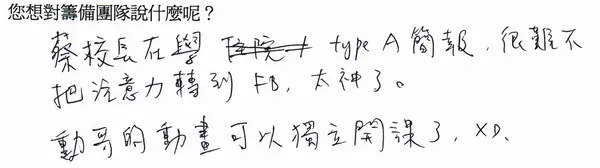 您想對籌備團隊說什麼呢？
蔡校長在學 type A 簡報，很難不
把注意力轉到 FB，太神了。
動哥的動畫可以獨立開課了，XD、